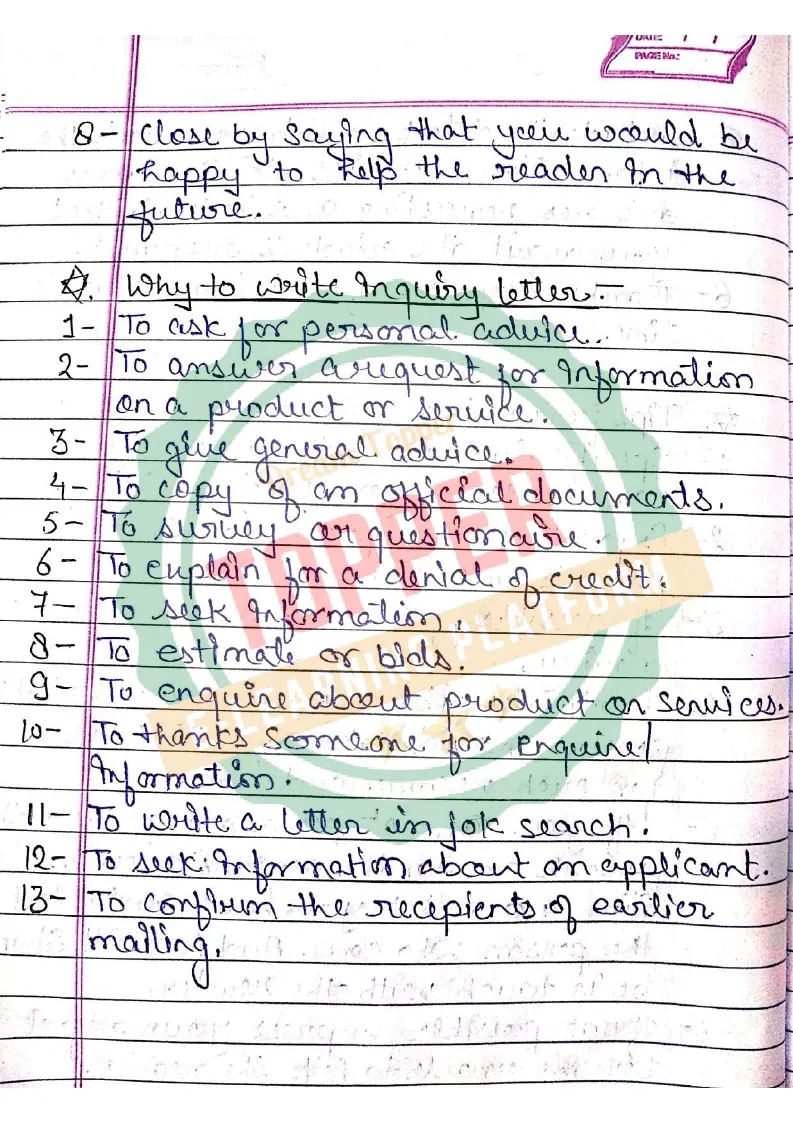 DATE: / /
PAGE No.:
8- Close by saying that you would be
happy to help the reader in the
future.
Q. Why to write Inquiry letter:-
1- To ask for personal advice.
2- To answer a request for Information
on a product or service.
3- To give general advice.
4- To copy of an official documents.
5- To survey or questionaire.
6- To explain for a denial of credit.
7- To seek Information.
8- To estimate or bids.
9- To enquire about product or services.
10- To thanks someone for enquire/
Information.
11- To write a letter in job search.
12- To seek Information about an applicant.
13- To confirm the recepients of earlier
mailing.
Dream Topper
TOPPER
E-LEARNING PLATFORM